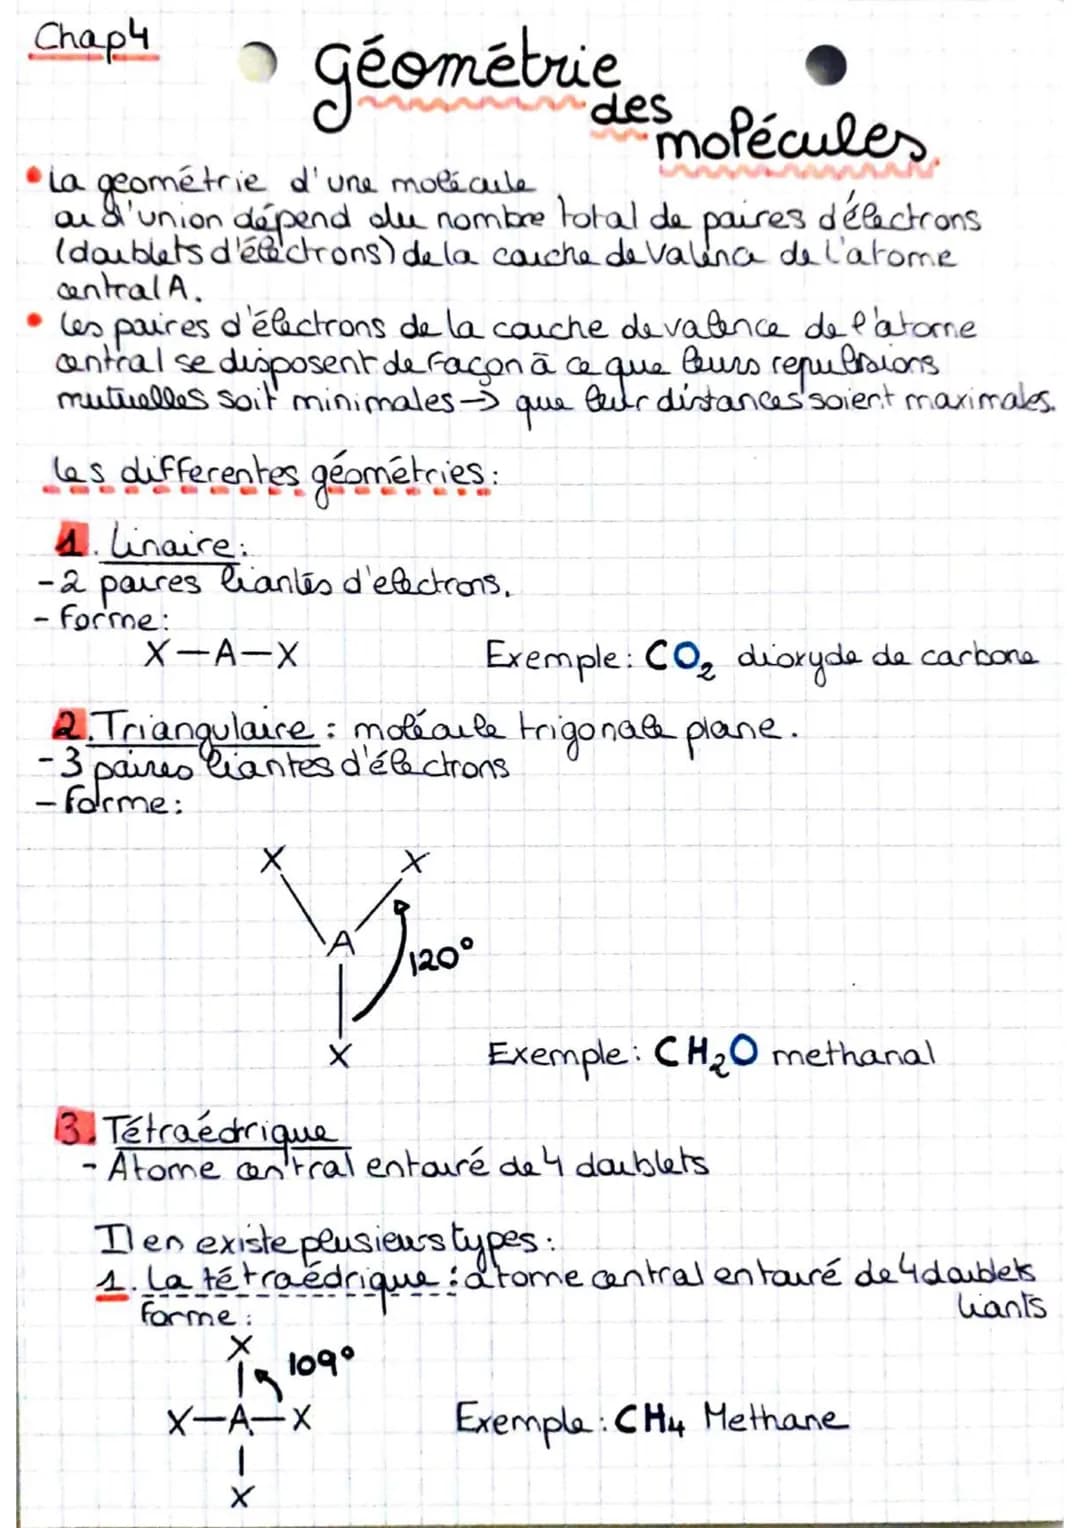 Chap4
Géométrie
des
molécules.
• La geométrie d'une molécule
ou d'union dépend du nombre total de paires d'électrons
(doublets d'électrons) de la couche de Valence de l'atome
central A.
• Les paires d'électrons de la couche de valence de l'atome
central se disposent de Façon à ce que leurs repulsions
mutuelles soit minimales → que leur distances soient maximales.
Les differentes géométries :
1. Linaire :
- 2 paires liantes d'electrons.
- Forme :
X-A-X Exemple : CO2 dioxyde de carbone
2. Triangulaire : molécule trigonale plane.
- 3 paires liantes d'électrons
- Forme :
X X
A
120°
X Exemple : CH2O methanal
3. Tétraédrique
- Atome central entouré de 4 doublets
Il en existe plusieurs types :
1. La tétraédrique : atome central entouré de 4 doublets
liants
Forme :
X
109°
X-A-X Exemple : CH4 Methane
X